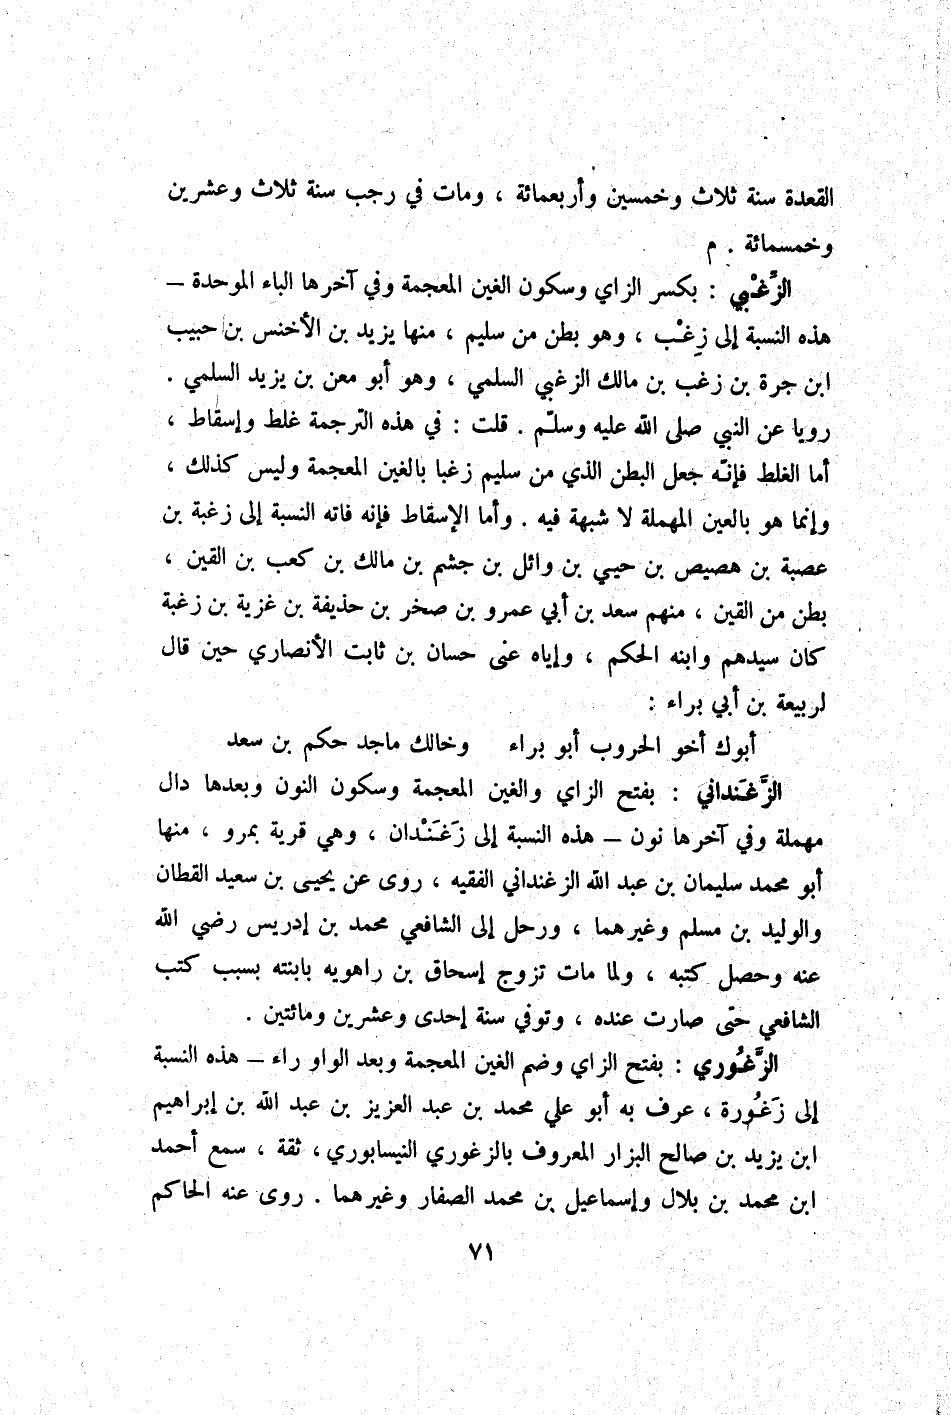 القعدة سنة ثلاث وخمسين وأربعمائة ، ومات في رجب سنة ثلاث وعشرين
وخمسمائة . م
الزَّغْبي : بكسر الزاي وسكون الغين المعجمة وفي آخرها الباء الموحدة –
هذه النسبة إلى زِغْب ، وهو بطن من سليم ، منها يزيد بن الأخنس بن حبيب
ابن جرة بن زغب بن مالك الزغبي السلمي ، وهو أبو معن بن يزيد السلمي .
رويا عن النبي صلى الله عليه وسلّم . قلت : في هذه الترجمة غلط وإسقاط ،
أما الغلط فإنّه جعل البطن الذي من سليم زغبا بالغين المعجمة وليس كذلك ،
وإنما هو بالعين المهملة لا شبهة فيه . وأما الإسقاط فإنه فاته النسبة إلى زغبة بن
عصبة بن هصيص بن حيي بن وائل بن جشم بن مالك بن كعب بن القين ،
بطن من القين ، منهم سعد بن أبي عمرو بن صخر بن حذيفة بن غزية بن زغبة
كان سيدهم وابنه الحكم ، وإياه عنى حسان بن ثابت الأنصاري حين قال
لربيعة بن أبي براء :
أبوك أخو الحروب أبو براء وخالك ماجد حكم بن سعد
الزَّغَنداني : بفتح الزاي والغين المعجمة وسكون النون وبعدها دال
مهملة وفي آخرها نون – هذه النسبة إلى زَغَنْدان ، وهي قرية بمرو ، منها
أبو محمد سليمان بن عبد الله الزغنداني الفقيه ، روى عن يحيى بن سعيد القطان
والوليد بن مسلم وغيرهما ، ورحل إلى الشافعي محمد بن إدريس رضي الله
عنه وحصل كتبه ، ولما مات تزوج إسحاق بن راهويه بابنته بسبب كتب
الشافعي حتى صارت عنده ، وتوفي سنة إحدى وعشرين ومائتين .
الزَّغُوري : بفتح الزاي وضم الغين المعجمة وبعد الواو راء – هذه النسبة
إلى زَغُورة ، عرف به أبو علي محمد بن عبد العزيز بن عبد الله بن إبراهيم
ابن يزيد بن صالح البزار المعروف بالزغوري النيسابوري ، ثقة ، سمع أحمد
ابن محمد بن بلال وإسماعيل بن محمد الصفار وغيرهما . روى عنه الحاكم
٧١